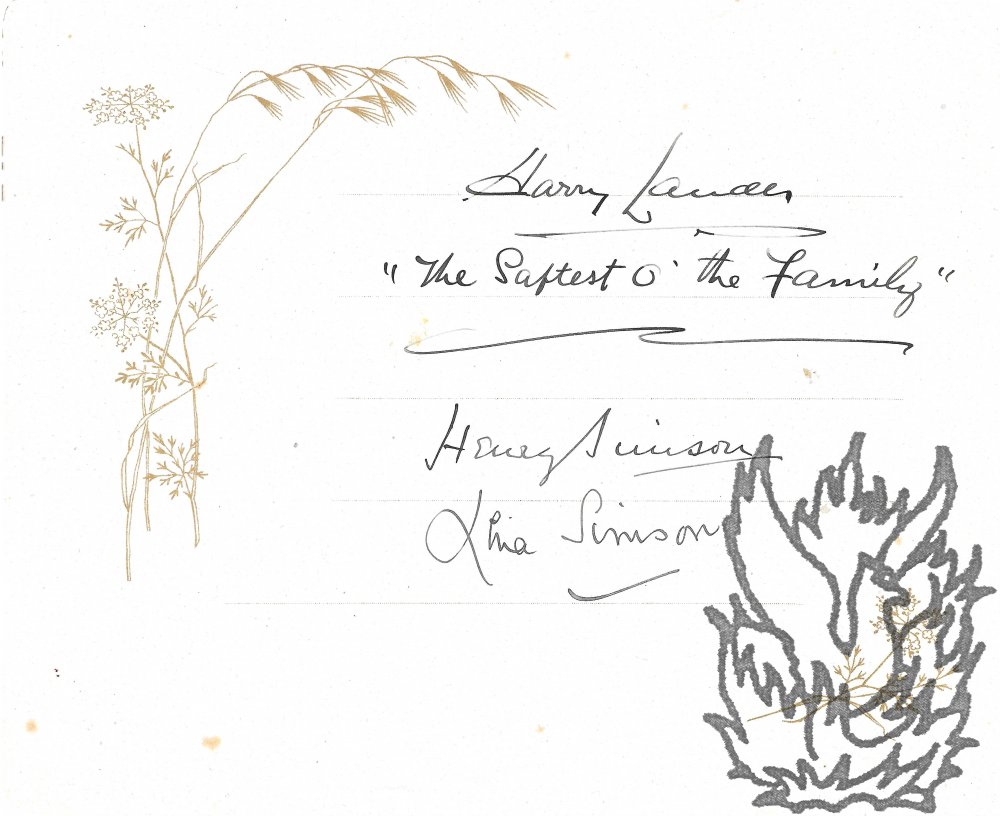 Harry Lauder
"The Saftest O' the Family"
Henry Simson
Lina Simson